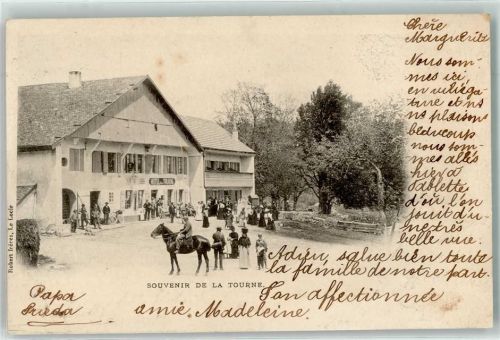 Chère
Marguerite
Nous som-
mes ici,
en villégia-
ture et ns
ns plaisons
beaucoup
nous som-
mes allés
hier à
Tablette
d'où, l'on
jouit d'u-
ne très
belle vue.
Adieu, salue bien toute
la famille de notre part.
Ton affectionnée
amie, Madeleine.
SOUVENIR DE LA TOURNE.
Robert frères, Le Locle
Papa